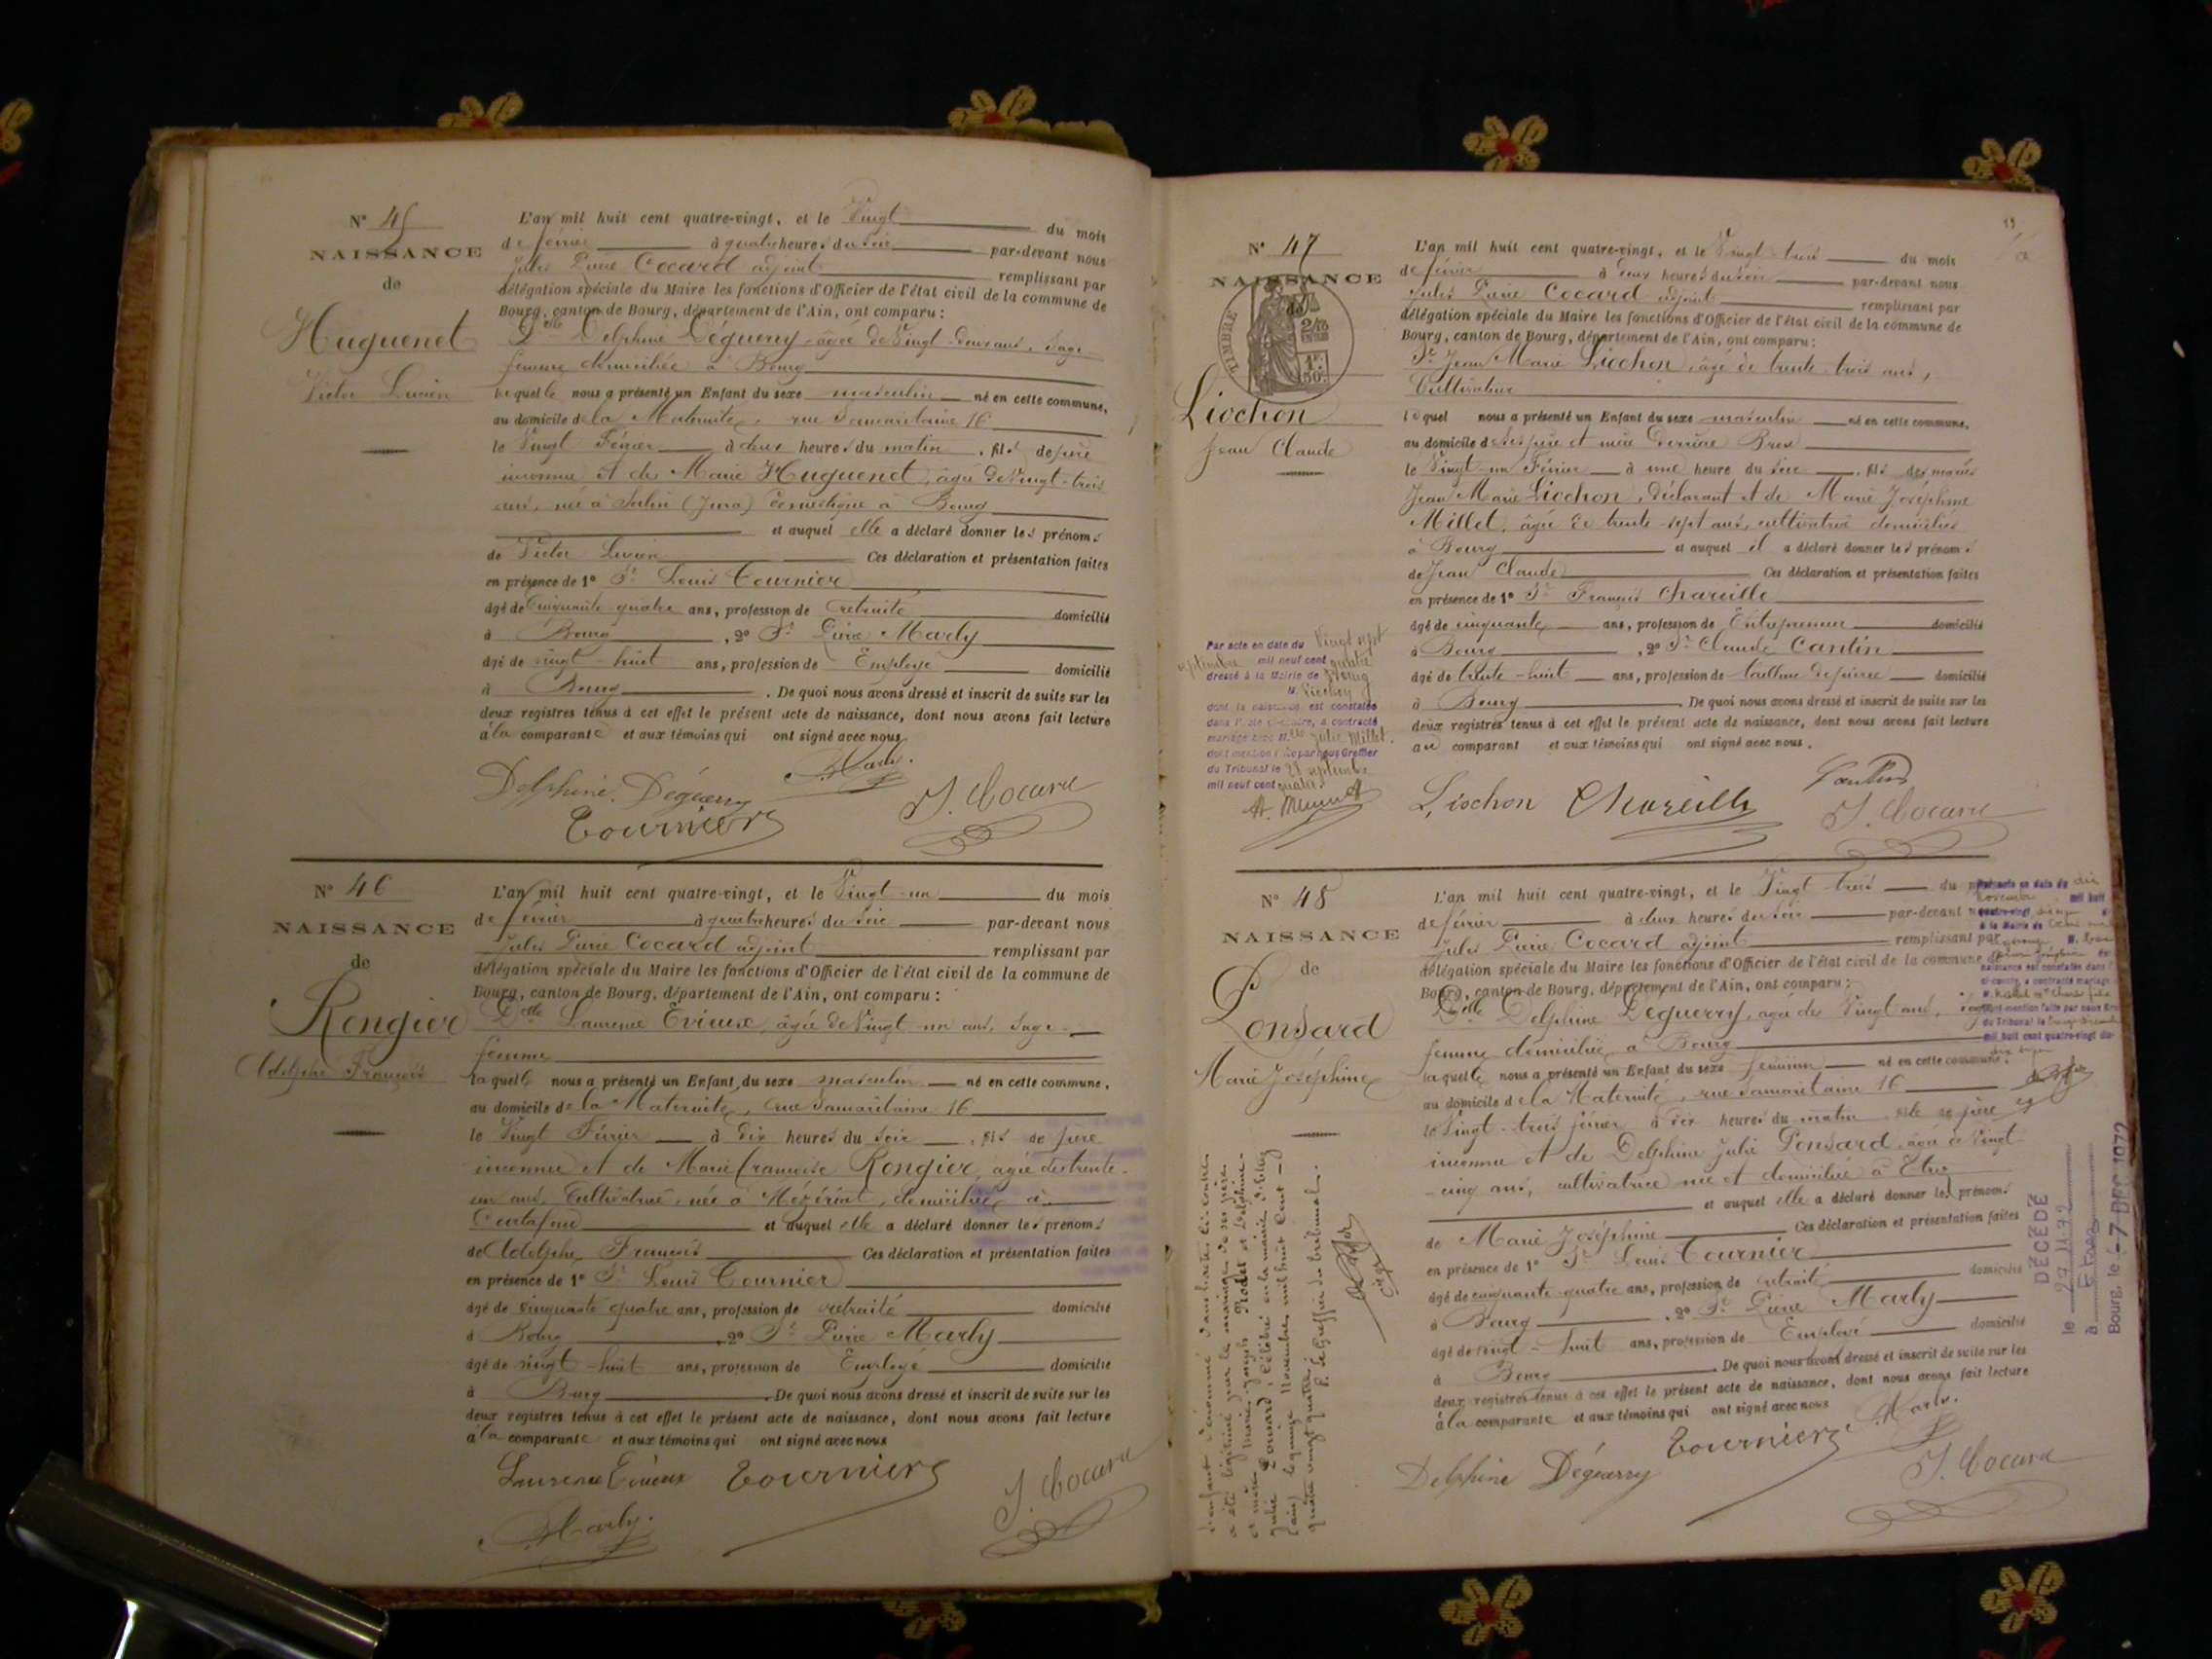 N° 45
NAISSANCE
de
Huguenet
Victor Lucien
L'an mil huit cent quatre-vingt, et le Vingt du mois
de février à quatre heures du soir par-devant nous
Jules Pierre Cocard adjoint remplissant par
délégation spéciale du Maire les fonctions d'Officier de l'état civil de la commune de
Bourg, canton de Bourg, département de l'Ain, ont comparu :
Delle Delphine Déguerry âgée de Vingt-deux ans, Sage
femme domiciliée à Bourg
laquelle nous a présenté un Enfant du sexe masculin né en cette commune,
au domicile de la Maternité, rue Samaritaine 16
le Vingt Février à deux heures du matin, fils de père
inconnu et de Marie Huguenet, âgée de Vingt-trois
ans, née à Salin (Jura) domestique à Bourg
et auquel elle a déclaré donner les prénoms
de Victor Lucien Ces déclaration et présentation faites
en présence de 1° Sr Louis Tournier
âgé de Cinquante quatre ans, profession de retraité domicilié
à Bourg, 2° Sr Pierre Marly
âgé de vingt-huit ans, profession de Employé domicilié
à Bourg. De quoi nous avons dressé et inscrit de suite sur les
deux registres tenus à cet effet le présent acte de naissance, dont nous avons fait lecture
à la comparante et aux témoins qui ont signé avec nous
Delphine Déguerry Marly.
Tournier J. Cocard
N° 46
NAISSANCE
de
Rongier
Adolphe François
L'an mil huit cent quatre-vingt, et le Vingt-un du mois
de février à quatre heures du soir par-devant nous
Jules Pierre Cocard adjoint remplissant par
délégation spéciale du Maire les fonctions d'Officier de l'état civil de la commune de
Bourg, canton de Bourg, département de l'Ain, ont comparu :
Delle Laurence Evieux, âgée de Vingt-un ans, Sage
femme
laquelle nous a présenté un Enfant du sexe masculin né en cette commune,
au domicile de la Maternité, rue Samaritaine 16
le Vingt Février à dix heures du soir, fils de père
inconnu et de Marie Françoise Rongier, âgée de trente-
un ans, Cultivatrice, née à Mézériat, domiciliée à
Curtafond et auquel elle a déclaré donner les prénoms
de Adolphe François Ces déclaration et présentation faites
en présence de 1° Sr Louis Tournier
âgé de cinquante quatre ans, profession de retraité domicilié
à Bourg, 2° Sr Pierre Marly
âgé de vingt-huit ans, profession de Employé domicilié
à Bourg. De quoi nous avons dressé et inscrit de suite sur les
deux registres tenus à cet effet le présent acte de naissance, dont nous avons fait lecture
à la comparante et aux témoins qui ont signé avec nous
Laurence Evieux Tournier J. Cocard
Marly.
N° 47
NAISSANCE
de
TIMBRE
2/10
1F
50c
Liochon
Jean Claude
L'an mil huit cent quatre-vingt, et le Vingt-trois du mois
de février à deux heures du soir par-devant nous
Jules Pierre Cocard adjoint remplissant par
délégation spéciale du Maire les fonctions d'Officier de l'état civil de la commune de
Bourg, canton de Bourg, département de l'Ain, ont comparu :
Sr Jean Marie Liochon, âgé de trente-trois ans,
Cultivateur
lequel nous a présenté un Enfant du sexe masculin né en cette commune,
au domicile de ses père et mère derrière Brou
le Vingt-un Février à une heure du soir, fils des mariés
Jean Marie Liochon, déclarant et de Marie Joséphine
Millet, âgée de trente-sept ans, cultivatrice domiciliés
à Bourg et auquel il a déclaré donner les prénoms
de Jean Claude Ces déclaration et présentation faites
en présence de 1° Sr François Chareille
âgé de cinquante ans, profession de Entrepreneur domicilié
à Bourg, 2° Sr Claude Cantin
âgé de trente-huit ans, profession de tailleur de pierre domicilié
à Bourg. De quoi nous avons dressé et inscrit de suite sur les
deux registres tenus à cet effet le présent acte de naissance, dont nous avons fait lecture
au comparant et aux témoins qui ont signé avec nous.
Par acte en date du Vingt sept
septembre mil neuf cent quatre
dressé à la Mairie de Bourg
M. Liochon
dont la naissance est constatée
dans l'acte ci-contre, a contracté
mariage avec Mlle Julie Millet.
dont mention faite par nous Greffier
du Tribunal le 29 septembre
mil neuf cent quatre
Liochon Chareille Cantin
J. Cocard
N° 48
NAISSANCE
de
Ponsard
Marie Joséphine
L'an mil huit cent quatre-vingt, et le Vingt trois du
de février à deux heures du soir par-devant
Jules Pierre Cocard adjoint remplissant par
délégation spéciale du Maire les fonctions d'Officier de l'état civil de la commune de
Bourg, canton de Bourg, département de l'Ain, ont comparu :
Delle Delphine Déguerry, âgée de Vingt ans,
femme domiciliée à Bourg
laquelle nous a présenté un Enfant du sexe féminin né en cette commune,
au domicile de la Maternité, rue Samaritaine 16
le Vingt-trois février à dix heures du matin fille de père
inconnu et de Delphine Julie Ponsard, âgée de Vingt
-cinq ans, cultivatrice née et domiciliée à Etrez
et auquel elle a déclaré donner les prénoms
de Marie Joséphine Ces déclaration et présentation faites
en présence de 1° Sr Louis Tournier
âgé de cinquante-quatre ans, profession de retraité domicilié
à Bourg, 2° Sr Pierre Marly
âgé de vingt-huit ans, profession de Employé domicilié
à Bourg. De quoi nous avons dressé et inscrit de suite sur les
deux registres tenus à cet effet le présent acte de naissance, dont nous avons fait lecture
à la comparante et aux témoins qui ont signé avec nous
Delphine Déguerry Tournier Marly.
J. Cocard
L'enfant dénommé dans l'acte ci-contre
a été légitimé par le mariage de ses père
et mère, Marie-Joseph Nodet et Delphine-
Julie Ponsard, célébré en la mairie d'Etrez
(Ain) le quinze Novembre mil huit cent
quatre vingt quatre.
P. le Greffier du tribunal.
DÉCÉDÉ
le 29.11.72
à Etrez
Bourg, le -7 DEC 1972